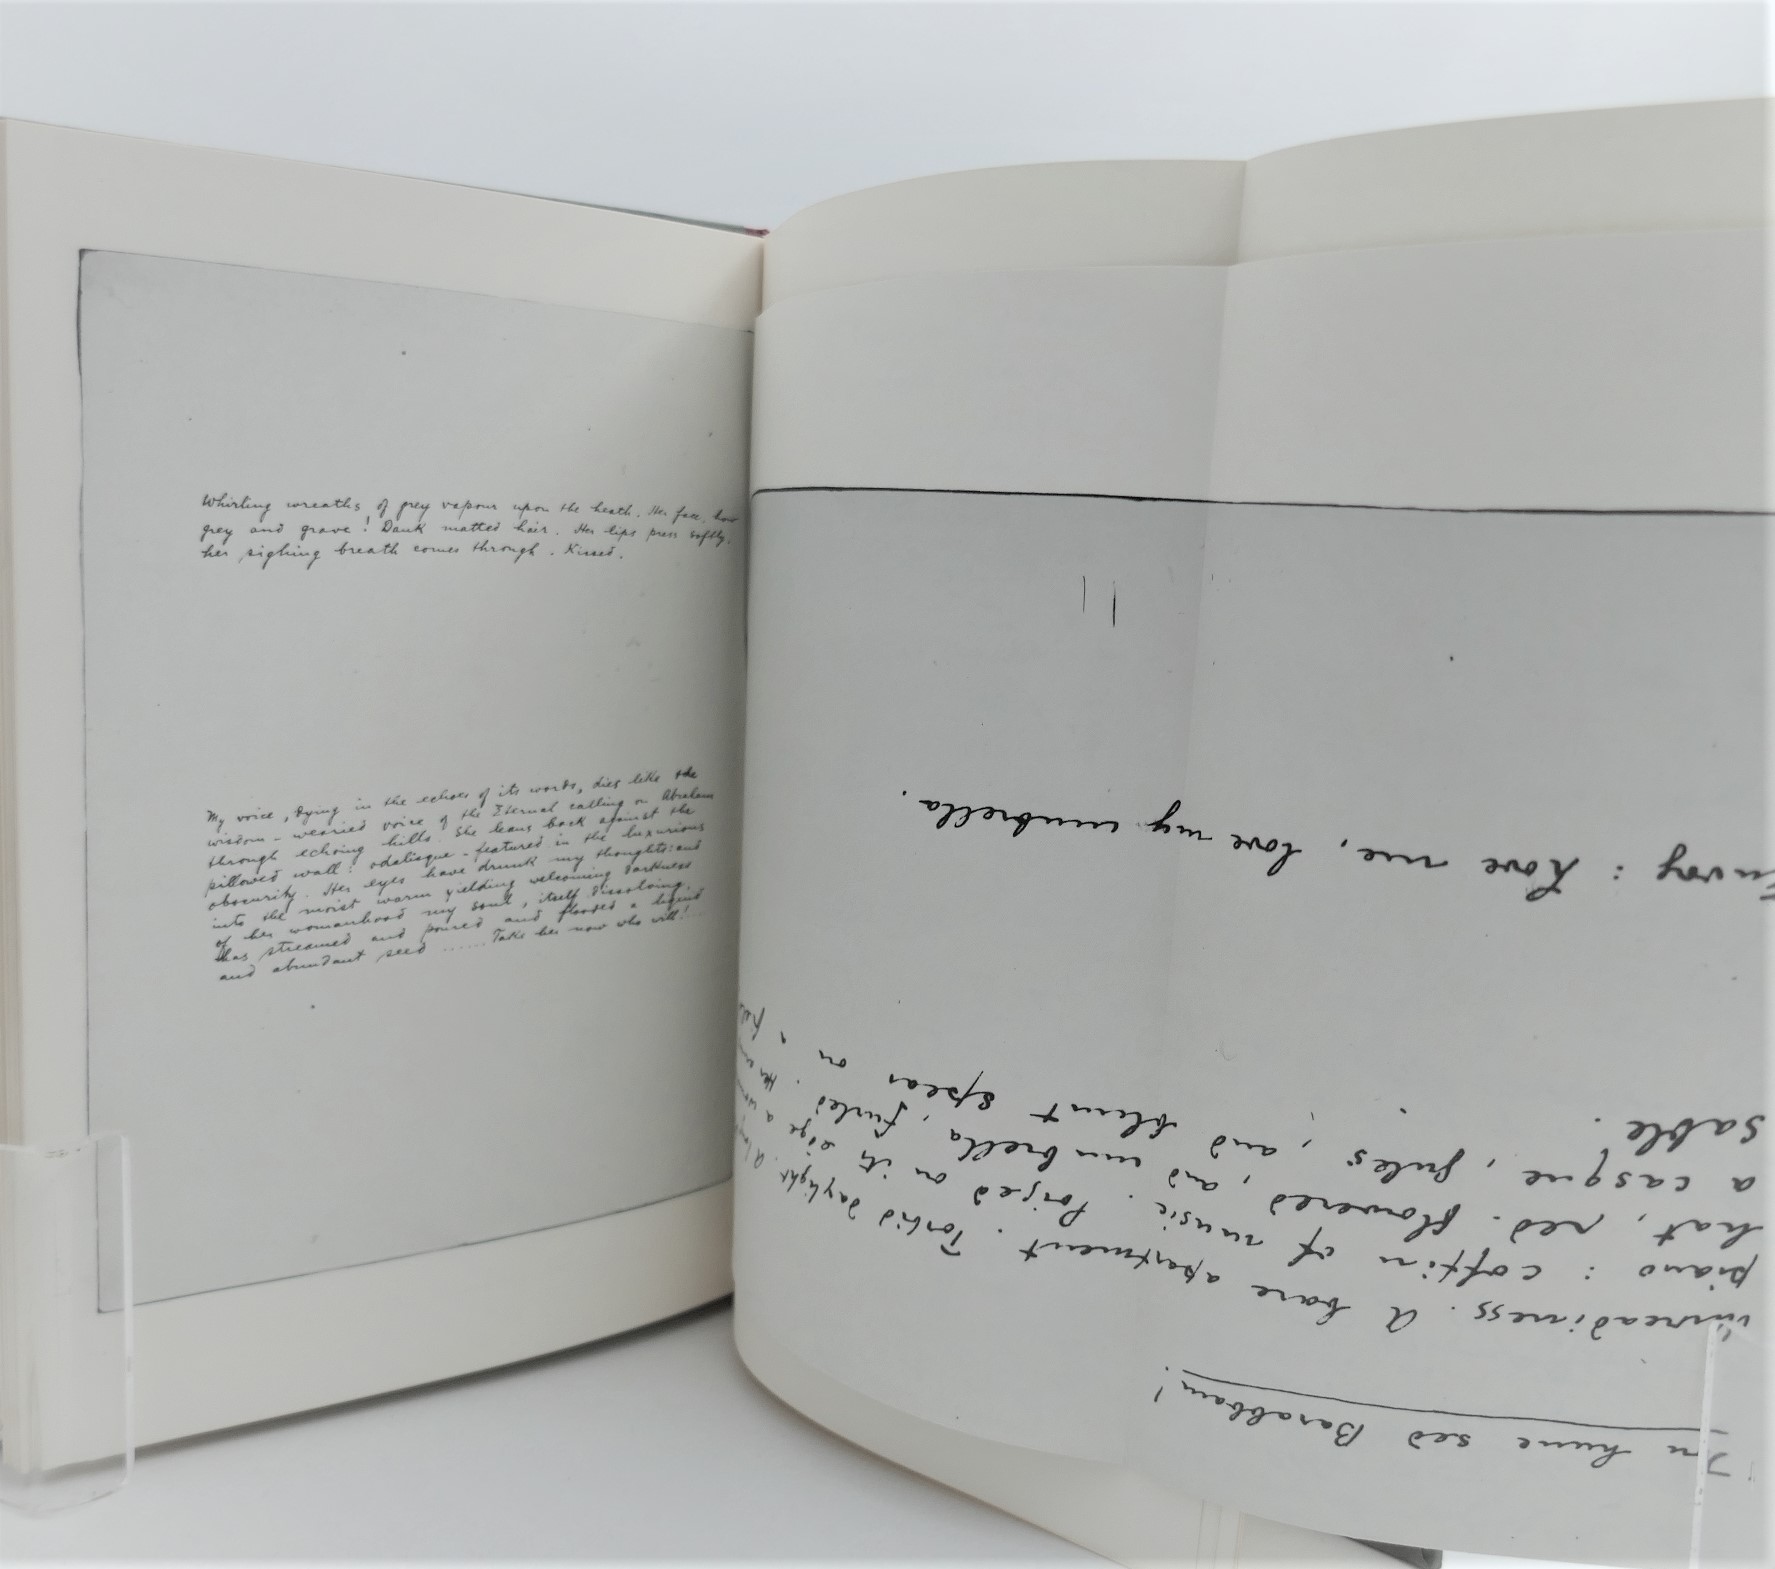 Whirling wreaths of grey vapour upon the heath. Her face, how
grey and grave! Dank matted hair. Her lips press softly,
her sighing breath comes through. Kissed.
My voice, dying in the echoes of its words, dies like the
wisdom-wearied voice of the Eternal calling on Abraham
through echoing hills. She leans back against the
pillowed wall: odalisque-featured in the luxurious
obscurity. Her eyes have drunk my thoughts: and
into the moist warm yielding welcoming darkness
of her womanhood my soul, itself dissolving,
has streamed and poured and flooded a liquid
and abundant seed ...... Take her now who will! ...
hunc sed Barabbam!
Unreadiness. A bare apartment. Torbid daylight. A long
piano: coffin of music. Poised on its edge a woman
hat, red-flowered, and umbrella, furled. Her
a casque, gules, and blunt spear on a field
sable.
Envoy: Love me, love my umbrella.